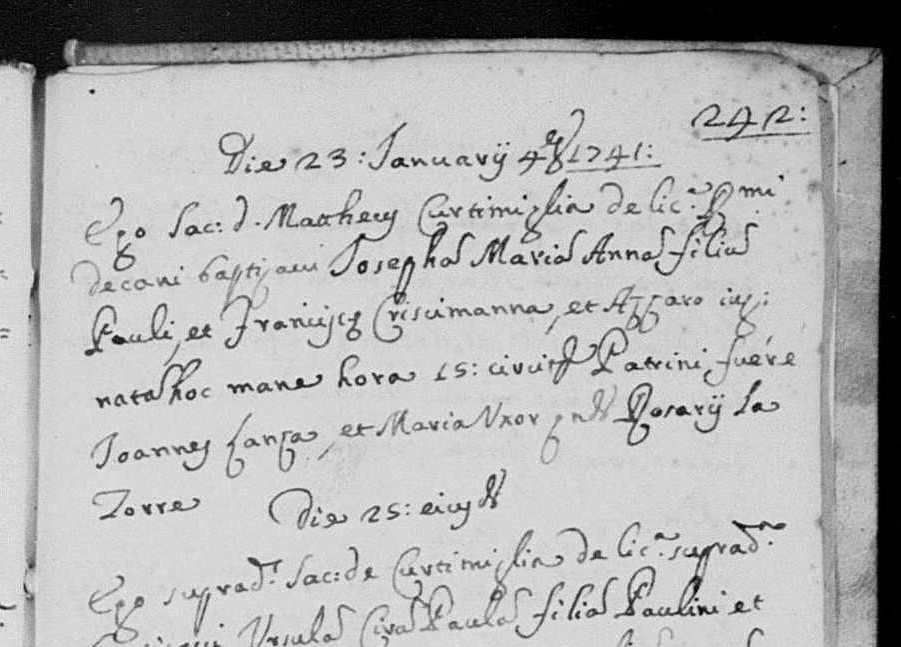 242:
Die 23: Januarij 4æ 1741:
Ego Sac: d. Mattheus Curtimiglia de lic.a Rmi
decani baptizavi Josepha Maria Anna filia
Pauli, et Francisca Criscimanna, et Azzaro jug:
nata hoc mane hora 15: circiter Patrini fuere
Joannes Lanza, et Maria Uxor qndam Rosarij la
Torre
Die 25: eiusd
Ego suprad.s Sac: de Curtimiglia de lic.a suprad.
Ursula Paula filia Paulini et